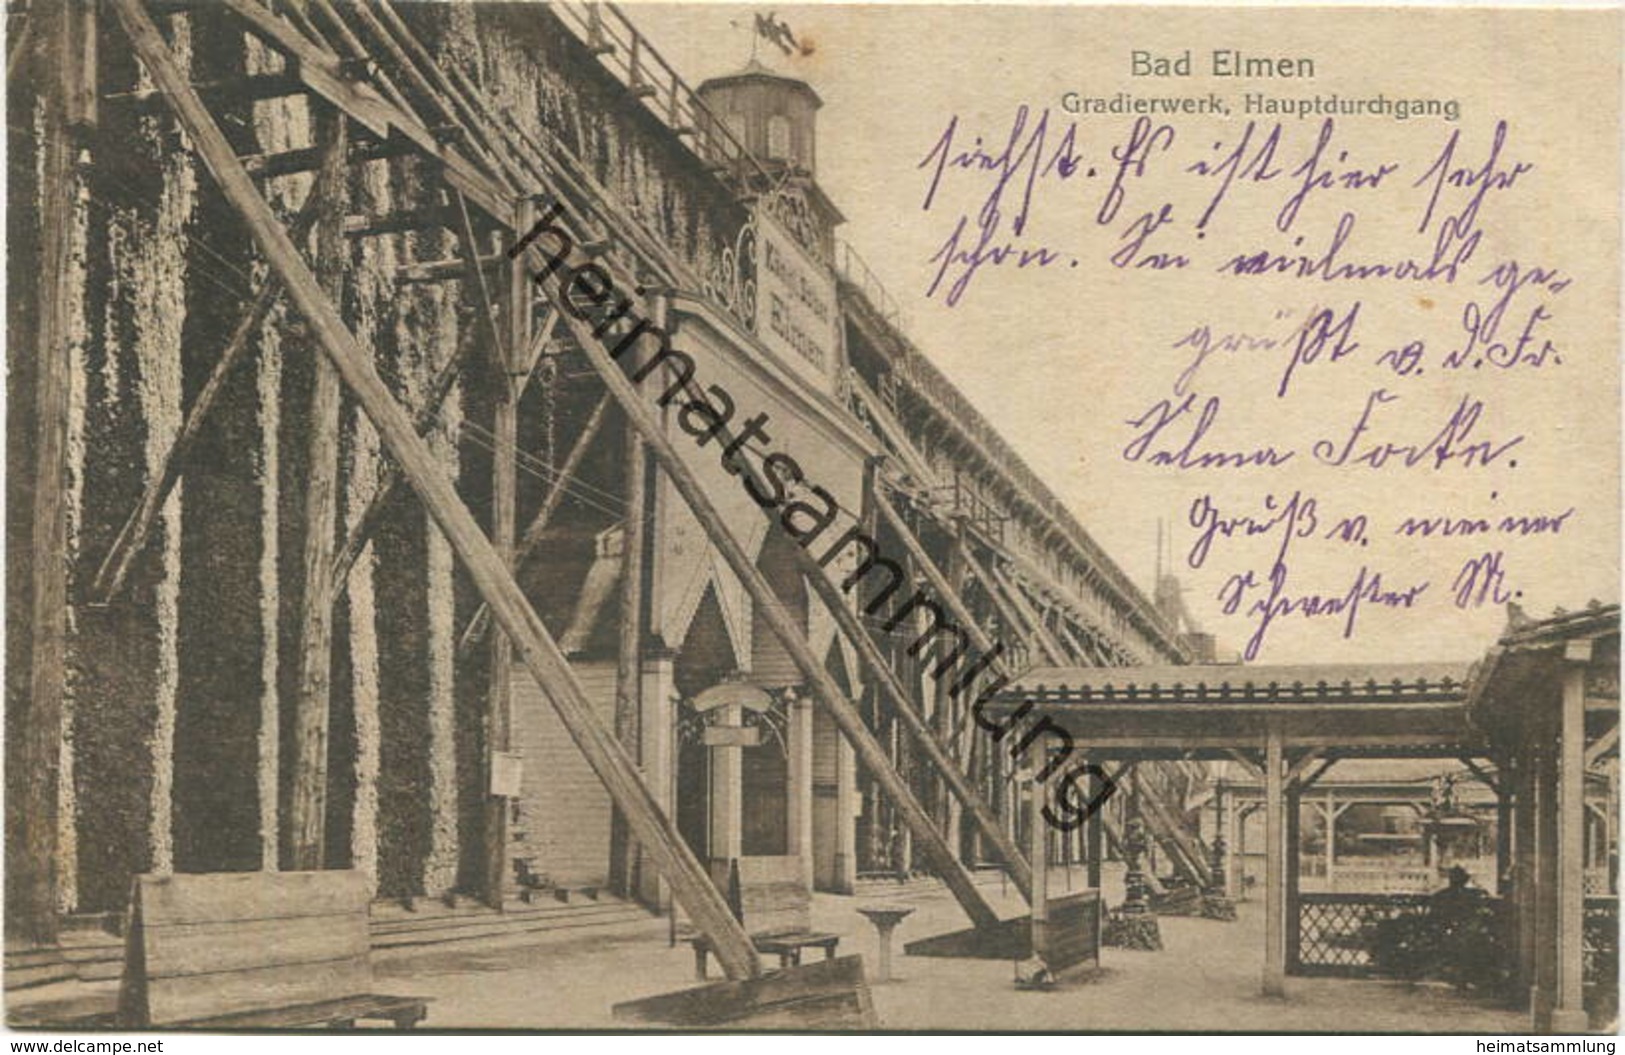 Bad Elmen
Gradierwerk, Hauptdurchgang
siehst. Es ist hier sehr
schön. Sei vielmals ge-
grüßt v. d. Fr.
Selma Focke.
Gruß v. meiner
Schwester M.
Elmen
heimatsammlung
www.delcampe.net
heimatsammlung